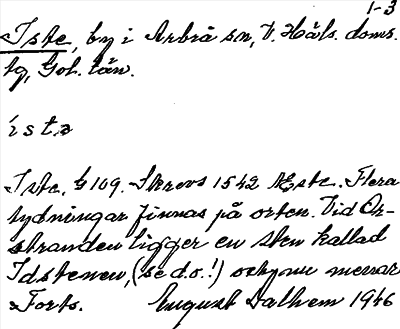 1-3
Iste, by i Arbrå sn, V. Häls. doms.
tg, Gbl. län.
ista
Iste, G 109. Skrevs 1542 Æste. Flera
tydningar finnas på orten. Vid Ör-
stranden ligger en sten kallad
Idstenen, (se d.o.!) och nu menar
Forts. August Dalhem 1946